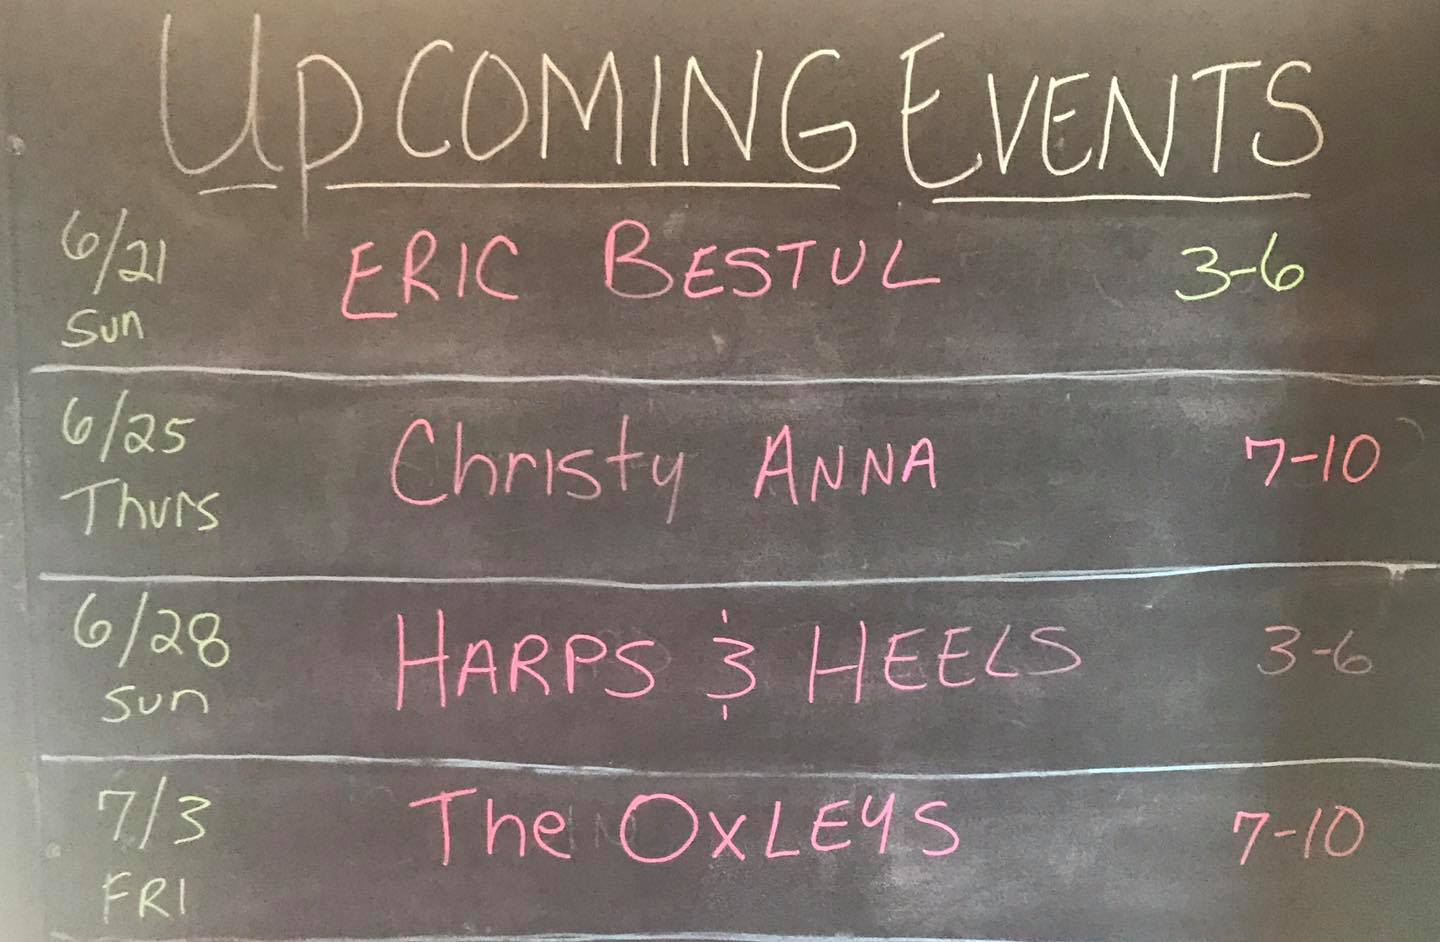 UpCOMING EVENTS
6/21 ERIC BESTUL 3-6
Sun
6/25 Christy ANNA 7-10
Thurs
6/28 HARPS & HEELS 3-6
Sun
7/3 The OXLEYS 7-10
FRI